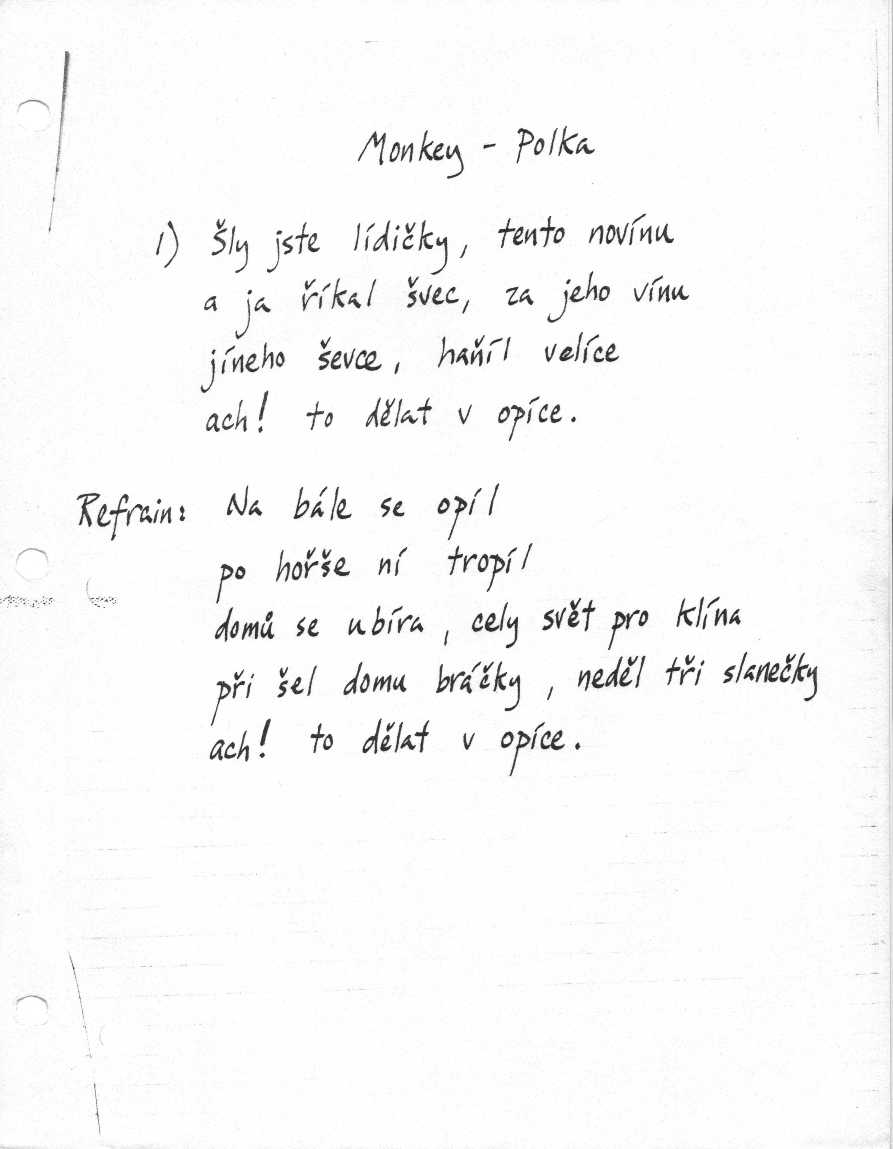 Monkey - Polka
1) Šly jste lídičky, tento novínu
a ja říkal švec, za jeho vínu
jíneho ševce, haňíl velíce
ach! to dělat v opíce.
Refrain: Na bále se opíl
po hořše ní tropíl
domů se ubíra, cely svět pro klína
při šel domu bráčky, neděl tři slanečky
ach! to dělat v opíce.